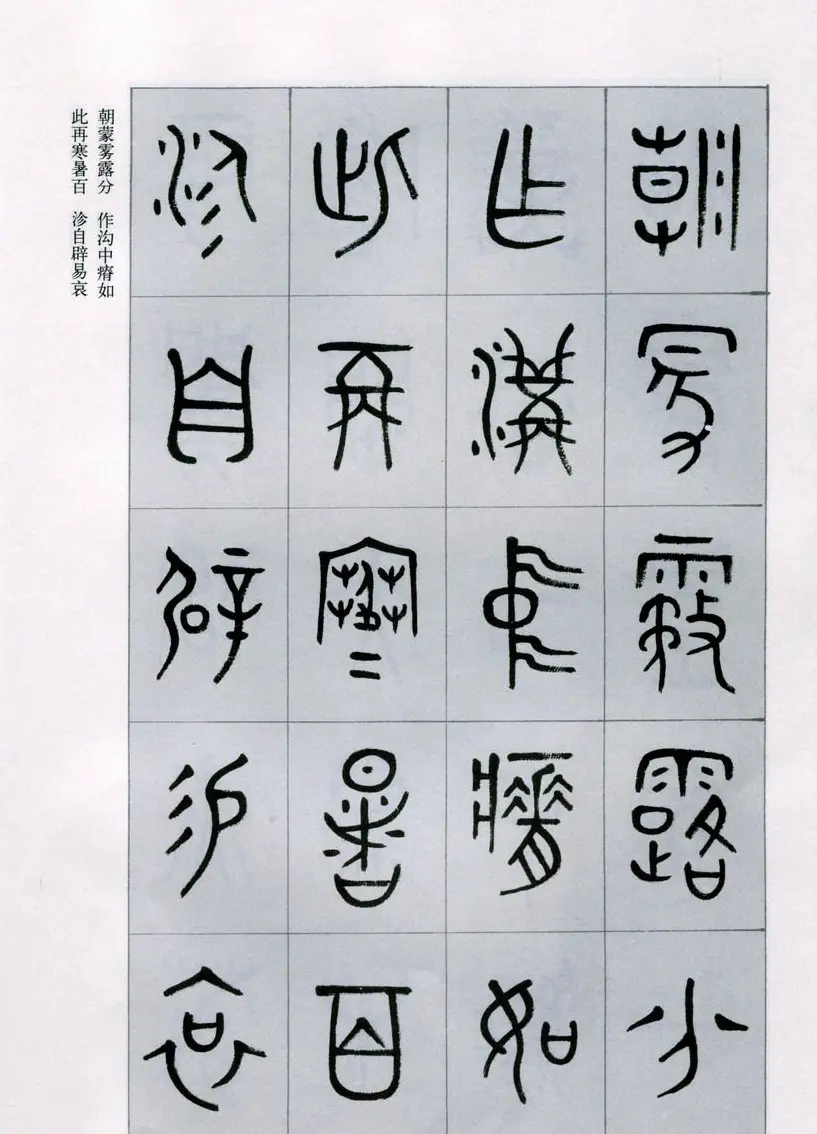 朝蒙霧露分
乍溝中瘠如
此再寒暑百
沴自辟易哀
朝蒙雾露分 作沟中瘠如
此再寒暑百 沴自辟易哀